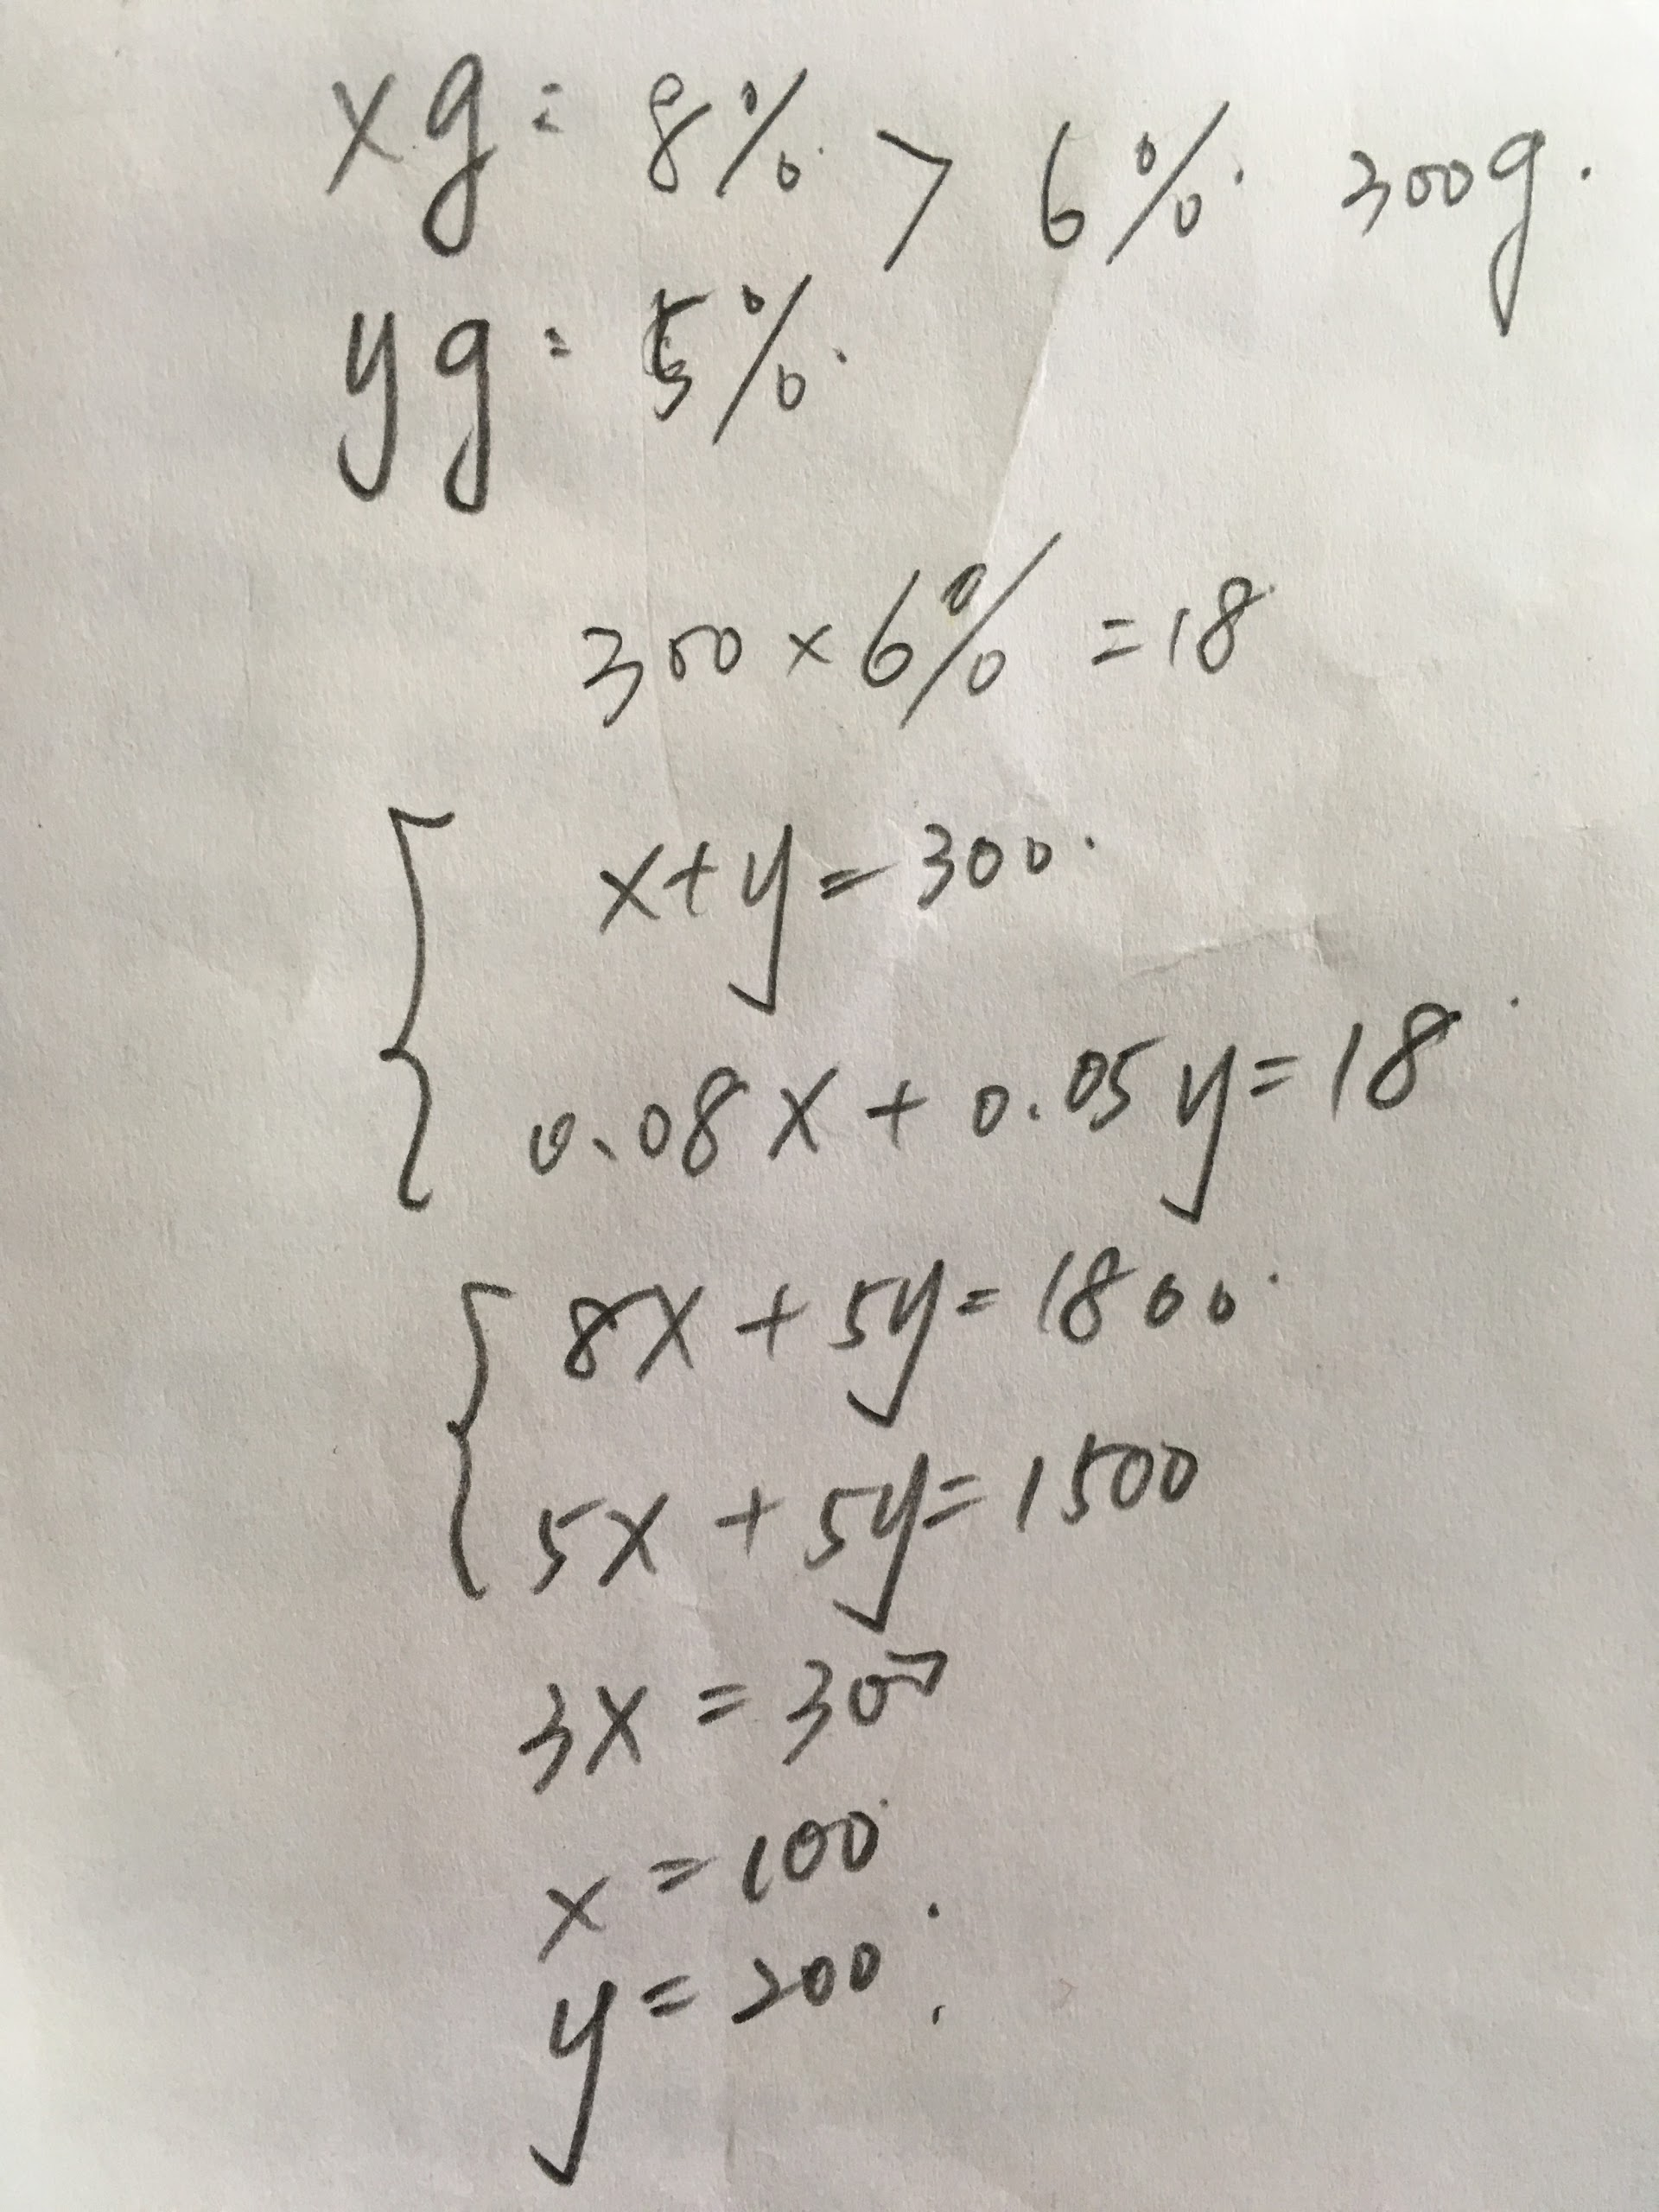 xg: 8% > 6% 300g.
yg: 5%
300 × 6% = 18
x+y=300
0.08x + 0.05y = 18
8x + 5y = 1800
5x + 5y = 1500
3x = 300
x = 100
y = 200